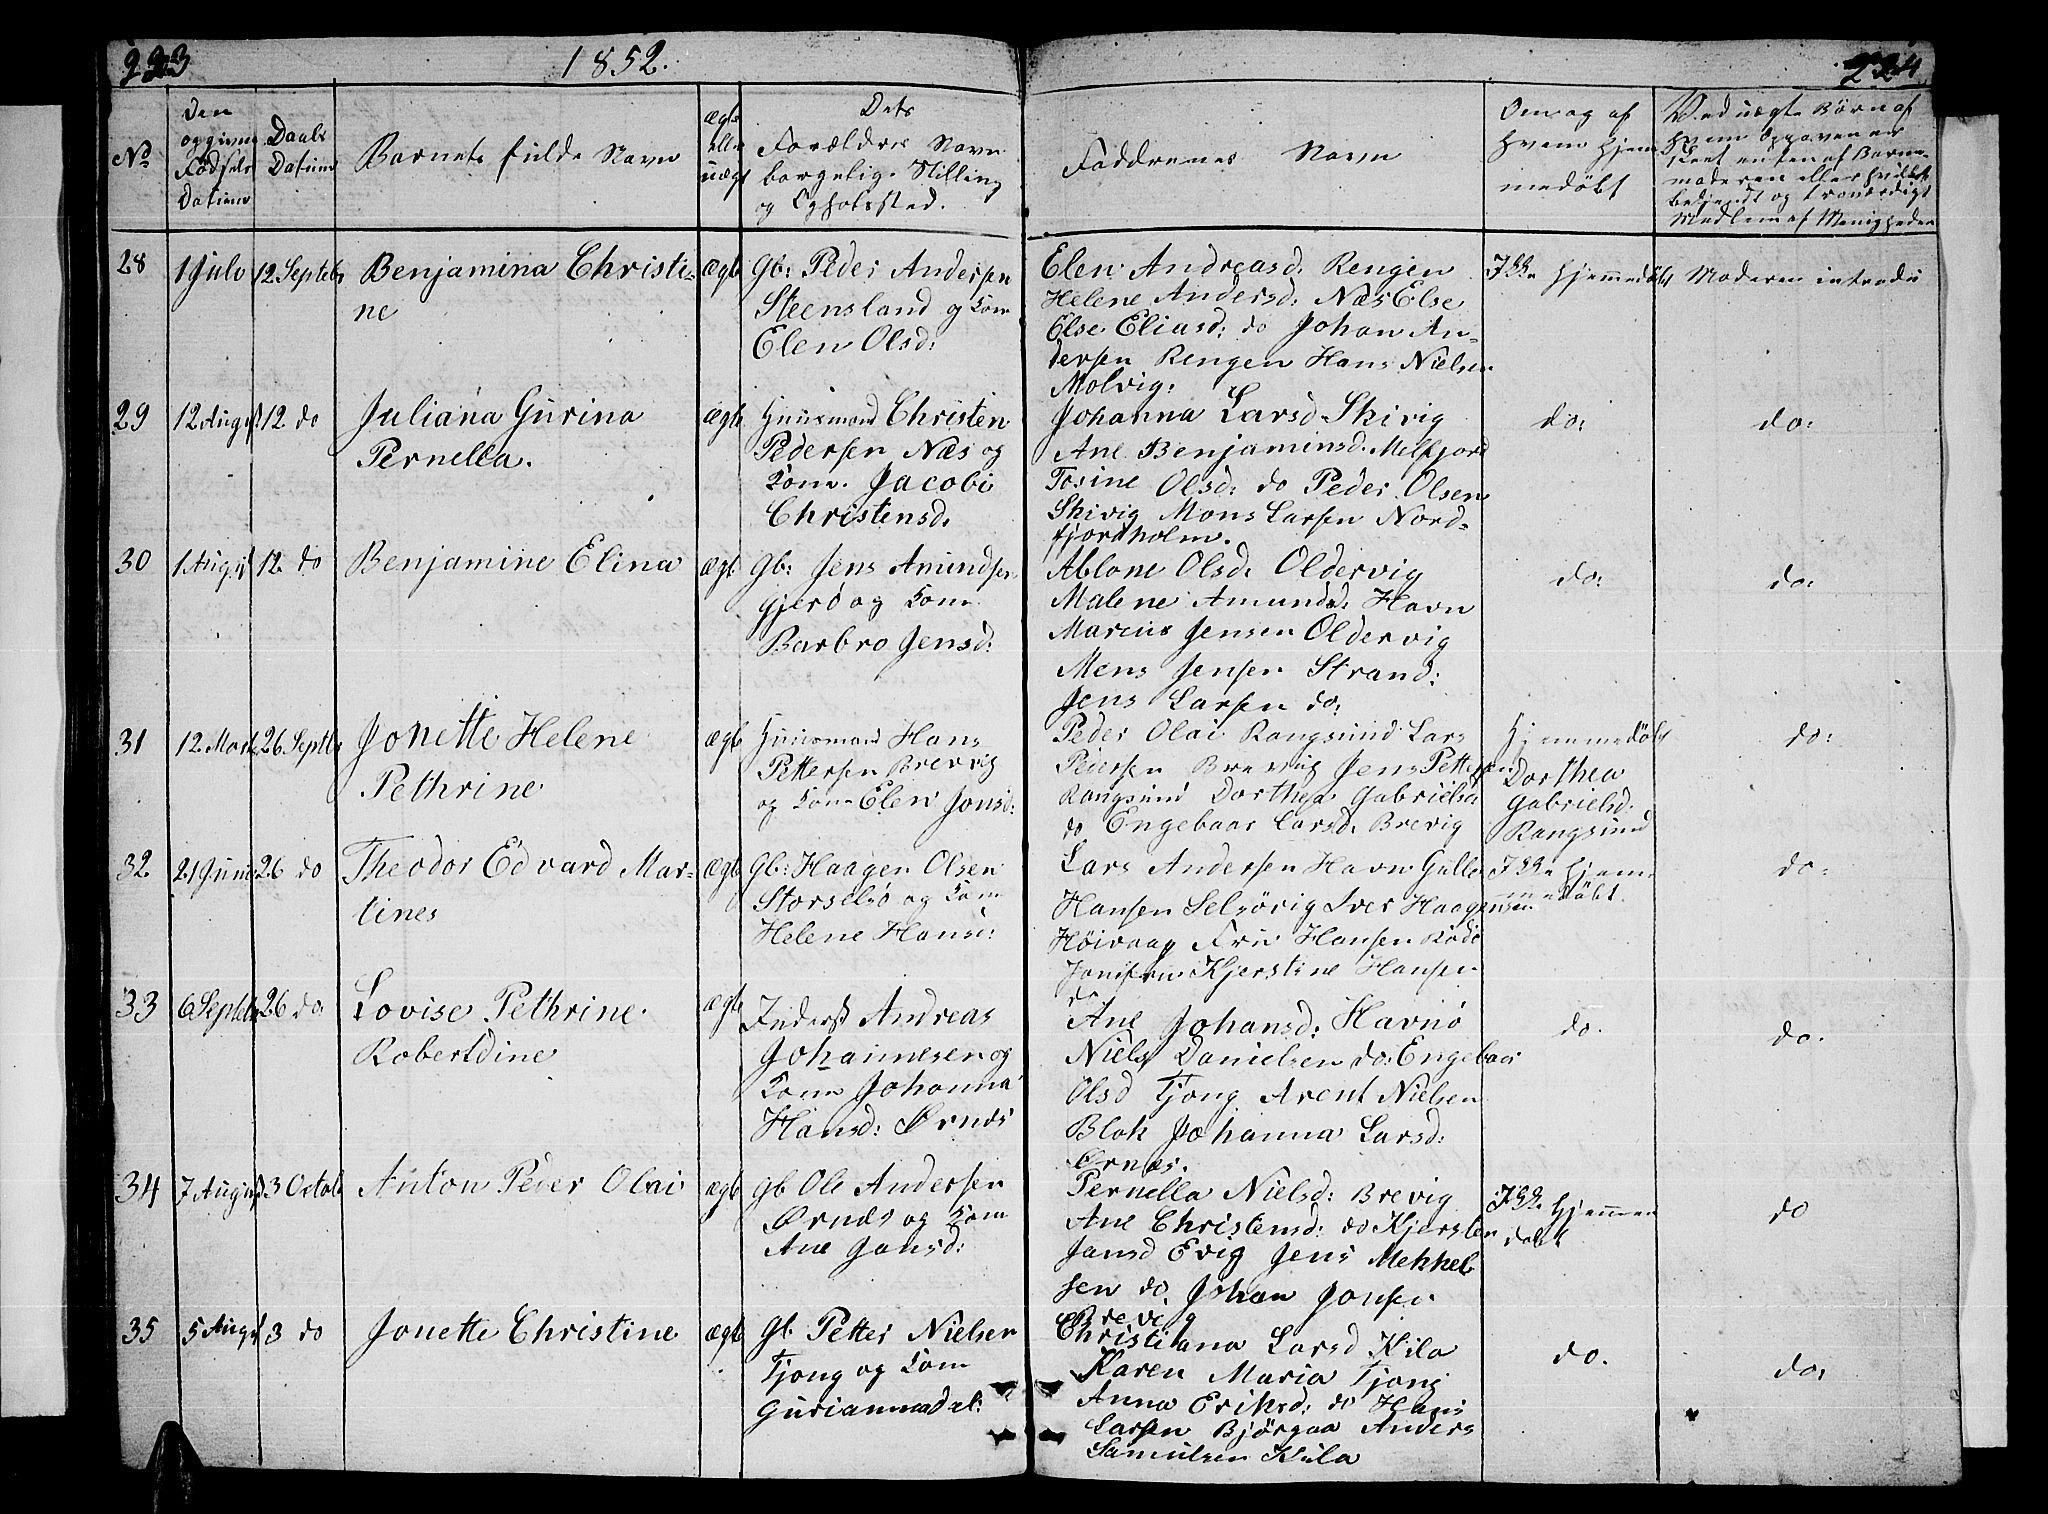 223
1852.
224
No
Den
opgivne
Fødsels
Datum
Daabs
Datum
Barnets fulde Navn
ægte
eller
uægte
Dets
Forældres Navn
borgelig. Stilling
og Opholssted.
Faddrenes Navn
Omsag af
hvem hjem
medøbt
Ved uægte Børn af
hvem Opgaven er
skeet enten af Barne-
moderen eller hvilket
bekjendt og troværdigt
Medlem af Menigheden
28
1 Julo
12 Septebr
Benjamina Christi-
ne
ægte
Gb: Peder Andersen
Steensland og Kone
Elen Olsd:
Elen Andreasd: Rengen
Helene Andersd: Næs Else
Else Eliasd: do Johan An-
dersen Rengen Hans Nielsen
Molvig:
Ikke hjemmedøbt
Moderen introdu
29
12 August
12 do
Juliana Gurina
Pernella.
ægte
Huusmand Christen
Pedersen Næs og
Kone. Jacobi
Christensd.
Johanna Larsd Skivig
Ane Benjaminsd. Melfjord
Tosine Olsd: do Peder Olsen
Skivig Mons Larsen Nord-
fjordholm.
do:
do:
30
1 August
12. do
Benjamine Elina
ægte
Gb: Jens Amundsen
Gjerø og Kone
Barbro Jensd:
Ablone Olsd: Oldervig
Malene Amundsd: Havn
Marcus Jensen Oldervig
Mens Jensen Strand:
Jens Larsen do:
do:
do:
31
12. Marts
26. Septbr
Jonette Helene
Pethrine
ægte
Huusmand Hans
Pettersen Brevig
og Kone Elen Jonsd:
Peder Olai Rangsund Lars
Peiersen Brevig Jens Pettersen
Rangsund Dorthea Gabrielsd
do Engebaar Larsd. Brevig
Hjemmedøbt
Dorthea
Gabrielsd:
Rangsund
do:
32
21 Juni
26 do
Theodor Edvard Mar-
tines
ægte
Gb: Haagen Olsen
Storselsø og Kone
Helene Hansd:
Lars Andersen Havn Gulle
Hansen Selsøvig Iver Haagensen
Høivaag Hansen Rødø
Jomfru Kjerstine Hansen
do
Ikke hjem-
medøbt.
do:
33
6 Septbr
26 do.
Lovise Pethrine
Robertdine
ægte
Inderst Andreas
Johannesen og
Kone Johanna
Hansd: Ørnes
Ane Johansd: Havnø
Niels Danielsen do: Engebaar
Olsd Tjong Arent Nielsen
Blok Johanna Larsd:
Ørnes.
do.
do.
34
7 August
3 Octob
Anton Peder Olai
ægte
Gb Ole Andersen
Ørnes og Kone
Ane Jonsd:
Pernella Nielsd: Brevig
Ane Christensd: do Kjersten
Jansd Evig Jens Mekkel
sen do Johan Jonsen
Brevig
Ikke hjemme
dobt
do
35
5 August
3 do
Jonette Christine
ægte
Gb Petter Nielsen
Tjong og Kone
Gurianna
Christiana Larsd Kila
Karen Maria Tjong
Anna Eriksd: do Hans
Larsen Bjørgaa Anders
Samuelsen Kila
do.
do: